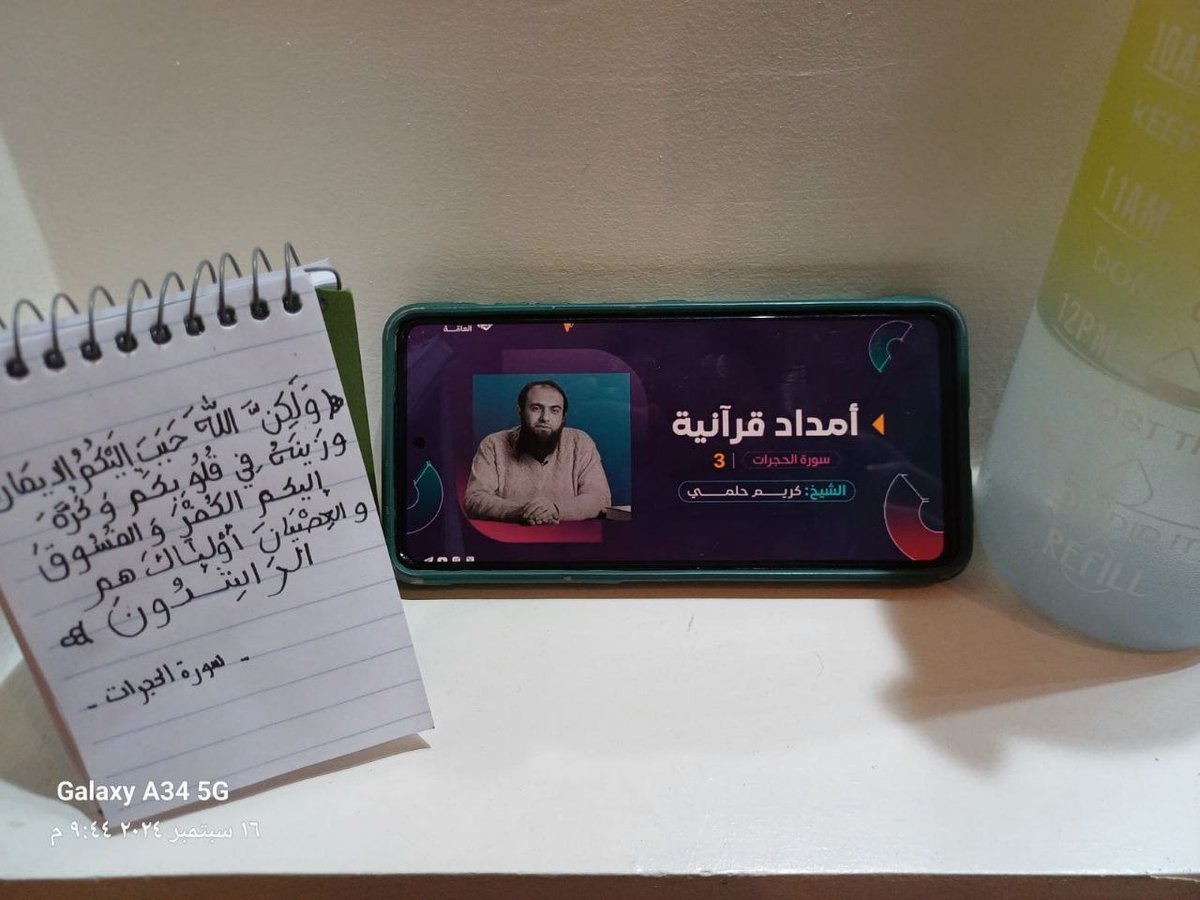 ﴿ وَلَكِنَّ اللَّهَ حَبَّبَ إِلَيْكُمُ الإِيمَانَ
وَزَيَّنَهُ فِي قُلُوبِكُم وَكَرَّهَ
إليكم الكُفْرَ وَالفُسُوقَ
وَالعِصْيَانَ أُوْلَٰئِكَ هم
الرَّاشِدُونَ ﴾
- سورة الحجرات -
العامّة
أمداد قرآنية
سورة الحجرات | 3
الشيخ: كريم حلمي
10A
KEEP
11AM
DON
12PM
REFILL
Galaxy A34 5G
١٦ سبتمبر ٢٠٢٤ ٩:٤٤ م